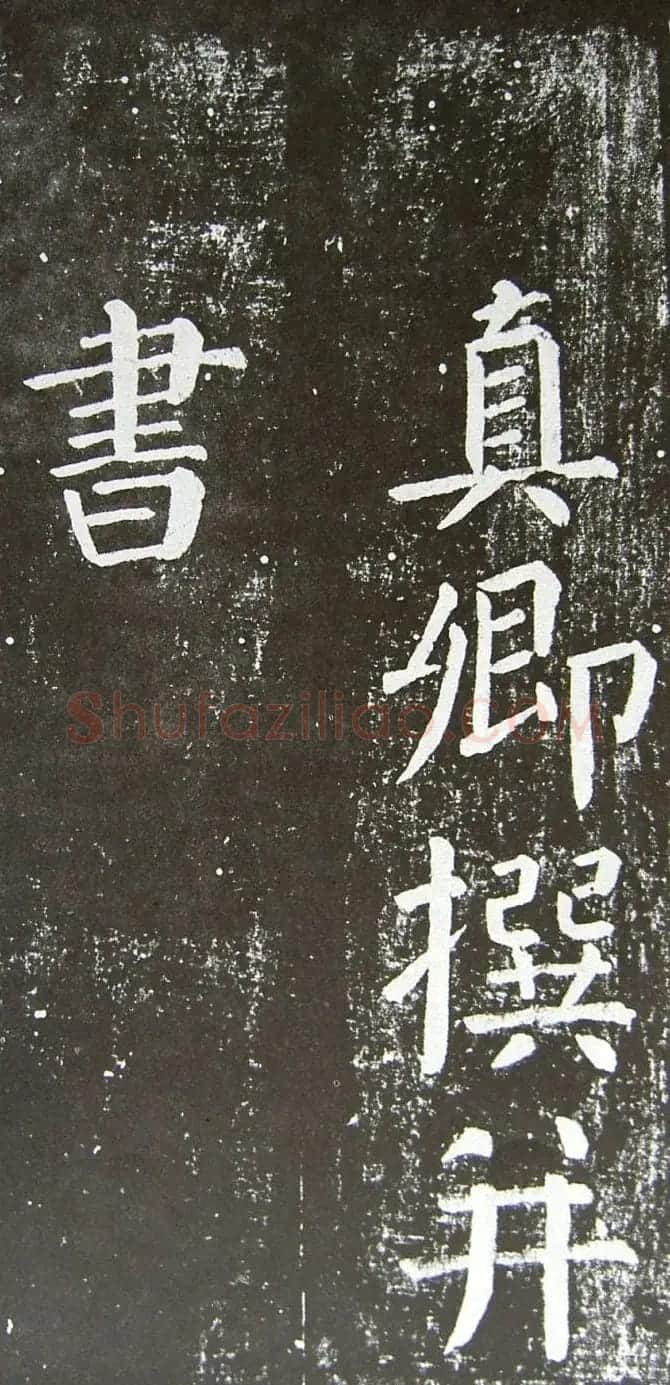 真卿撰并
書
Shufaziliao.COM